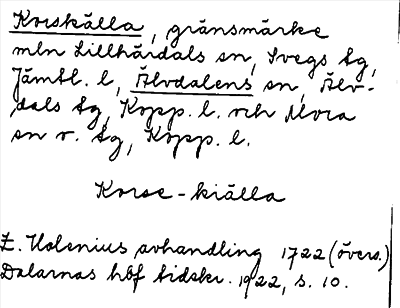 Korskälla, gränsmärke
mln Lillhärdals sn, Svegs tg,
Jämtl. l, Älvdalens sn, Älv-
dals tg, Kopp. l. och Mora
sn o. tg, Kopp. l.
Korse-kiälla
E. Holenius avhandling 1722 (övers.)
Dalarnas hbf tidskr. 1922, s. 10.